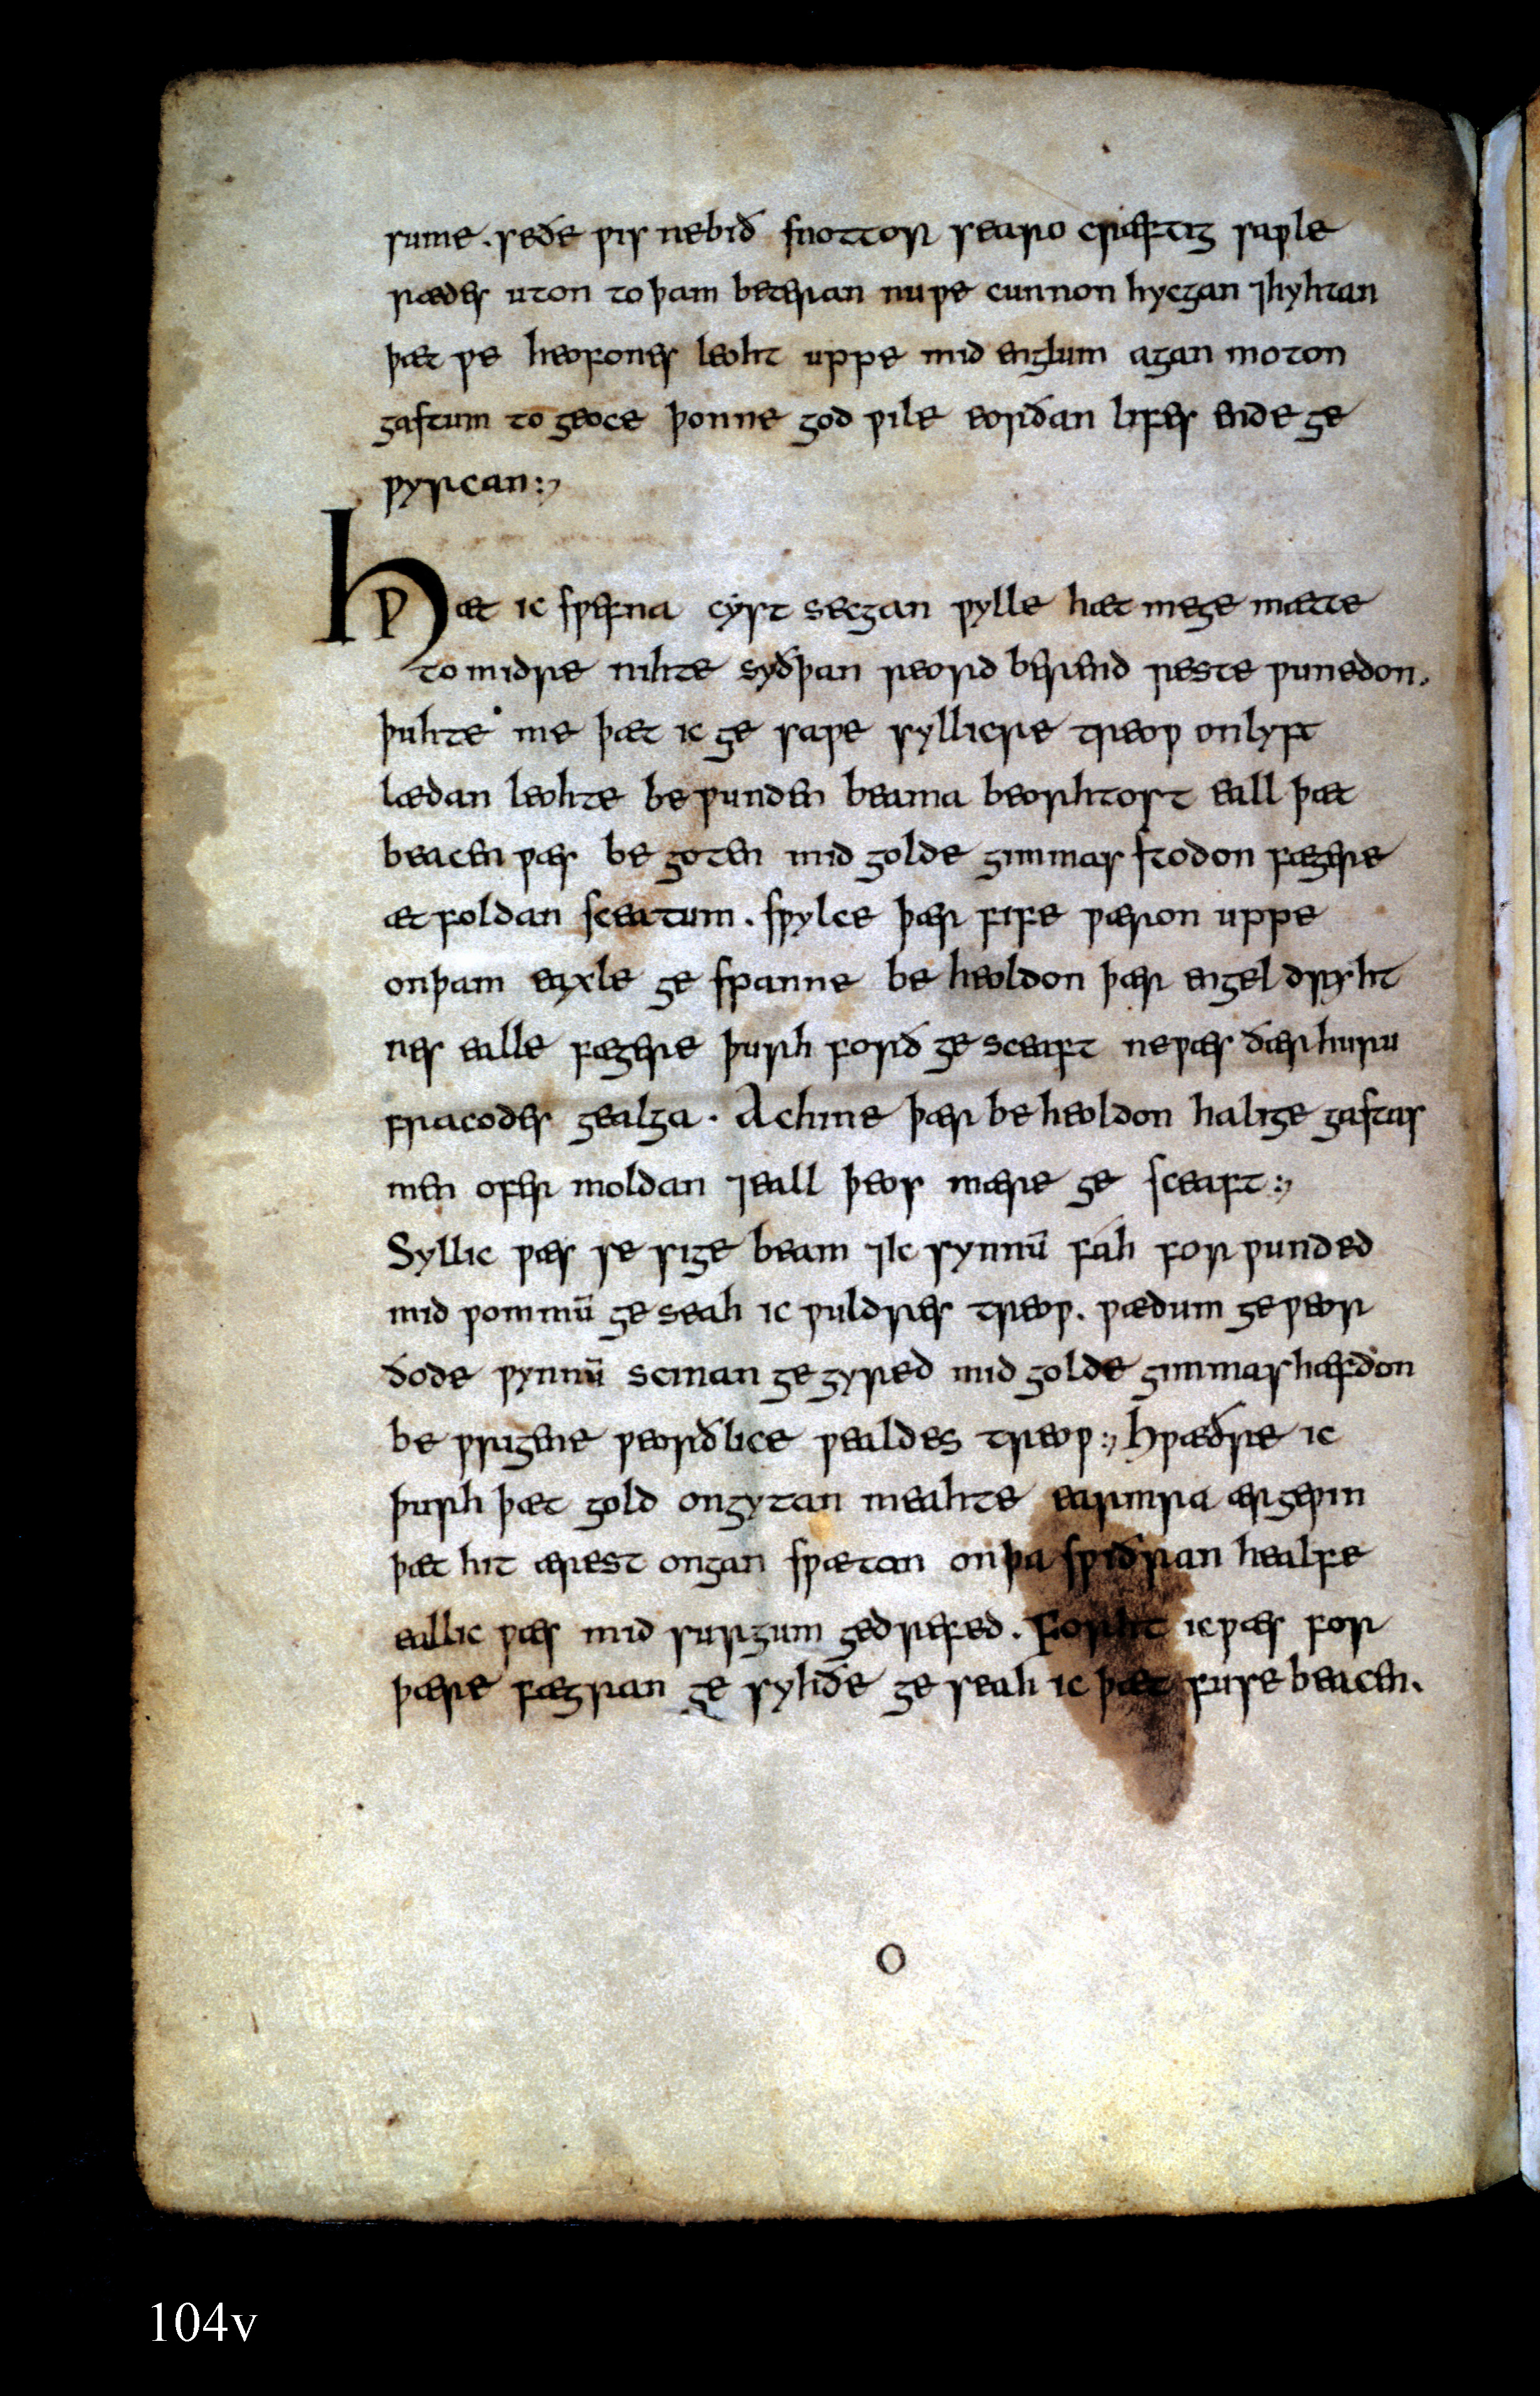 sume. seðe ƿis nebið snottor searo cræftig saƿle
rædes uton to þam beteran nuƿe cunnon hycgan ⁊hyhtan
þæt ƿe heofones leoht uppe mid englum agan moton
gastum to geoce þonne god ƿile eorðan lifes ende ge
ƿyrcan:,
Hƿæt ic sƿefna cyst secgan ƿylle hæt mege mætte
to midre nihte syðþan reord berend reste ƿunedon.
þuhte me þæt ic ge saƿe syllicre treoƿ onlyft
lædan leohte be ƿunden beama beorhtost eall þæt
beacen ƿæs be goten mid golde gimmas stodon fægere
æt foldan sceatum. sƿylce þær fife ƿæron uppe
onþam eaxle ge spanne be heoldon þær engel dryht
nes ealle fægere þurh forð ge sceaft neƿæs ðær huru
fracodes gealga. Achine þær be heoldon halige gastas
men ofer moldan ⁊eall þeos mære ge sceaft:,
Syllic ƿæs se sige beam ⁊ic synnū fáh for ƿunded
mid ƿommū ge seah ic ƿuldres treoƿ. ƿædum geƿeor
ðode ƿynnū scinan ge gyred mid golde gimmas hæfdon
be ƿrigene ƿeorðlice ƿealdes treoƿ:, Hƿæðre ic
þurh þæt gold ongytan meahte earmra ærgeƿin
þæt hit ærest ongan sƿætan on þa sƿiðran healfe
eallic ƿæs mid surgum gedrefed. Forht icƿæs for
þære fægran ge syhðe ge seah ic þæt fuse beacen.
O
104v